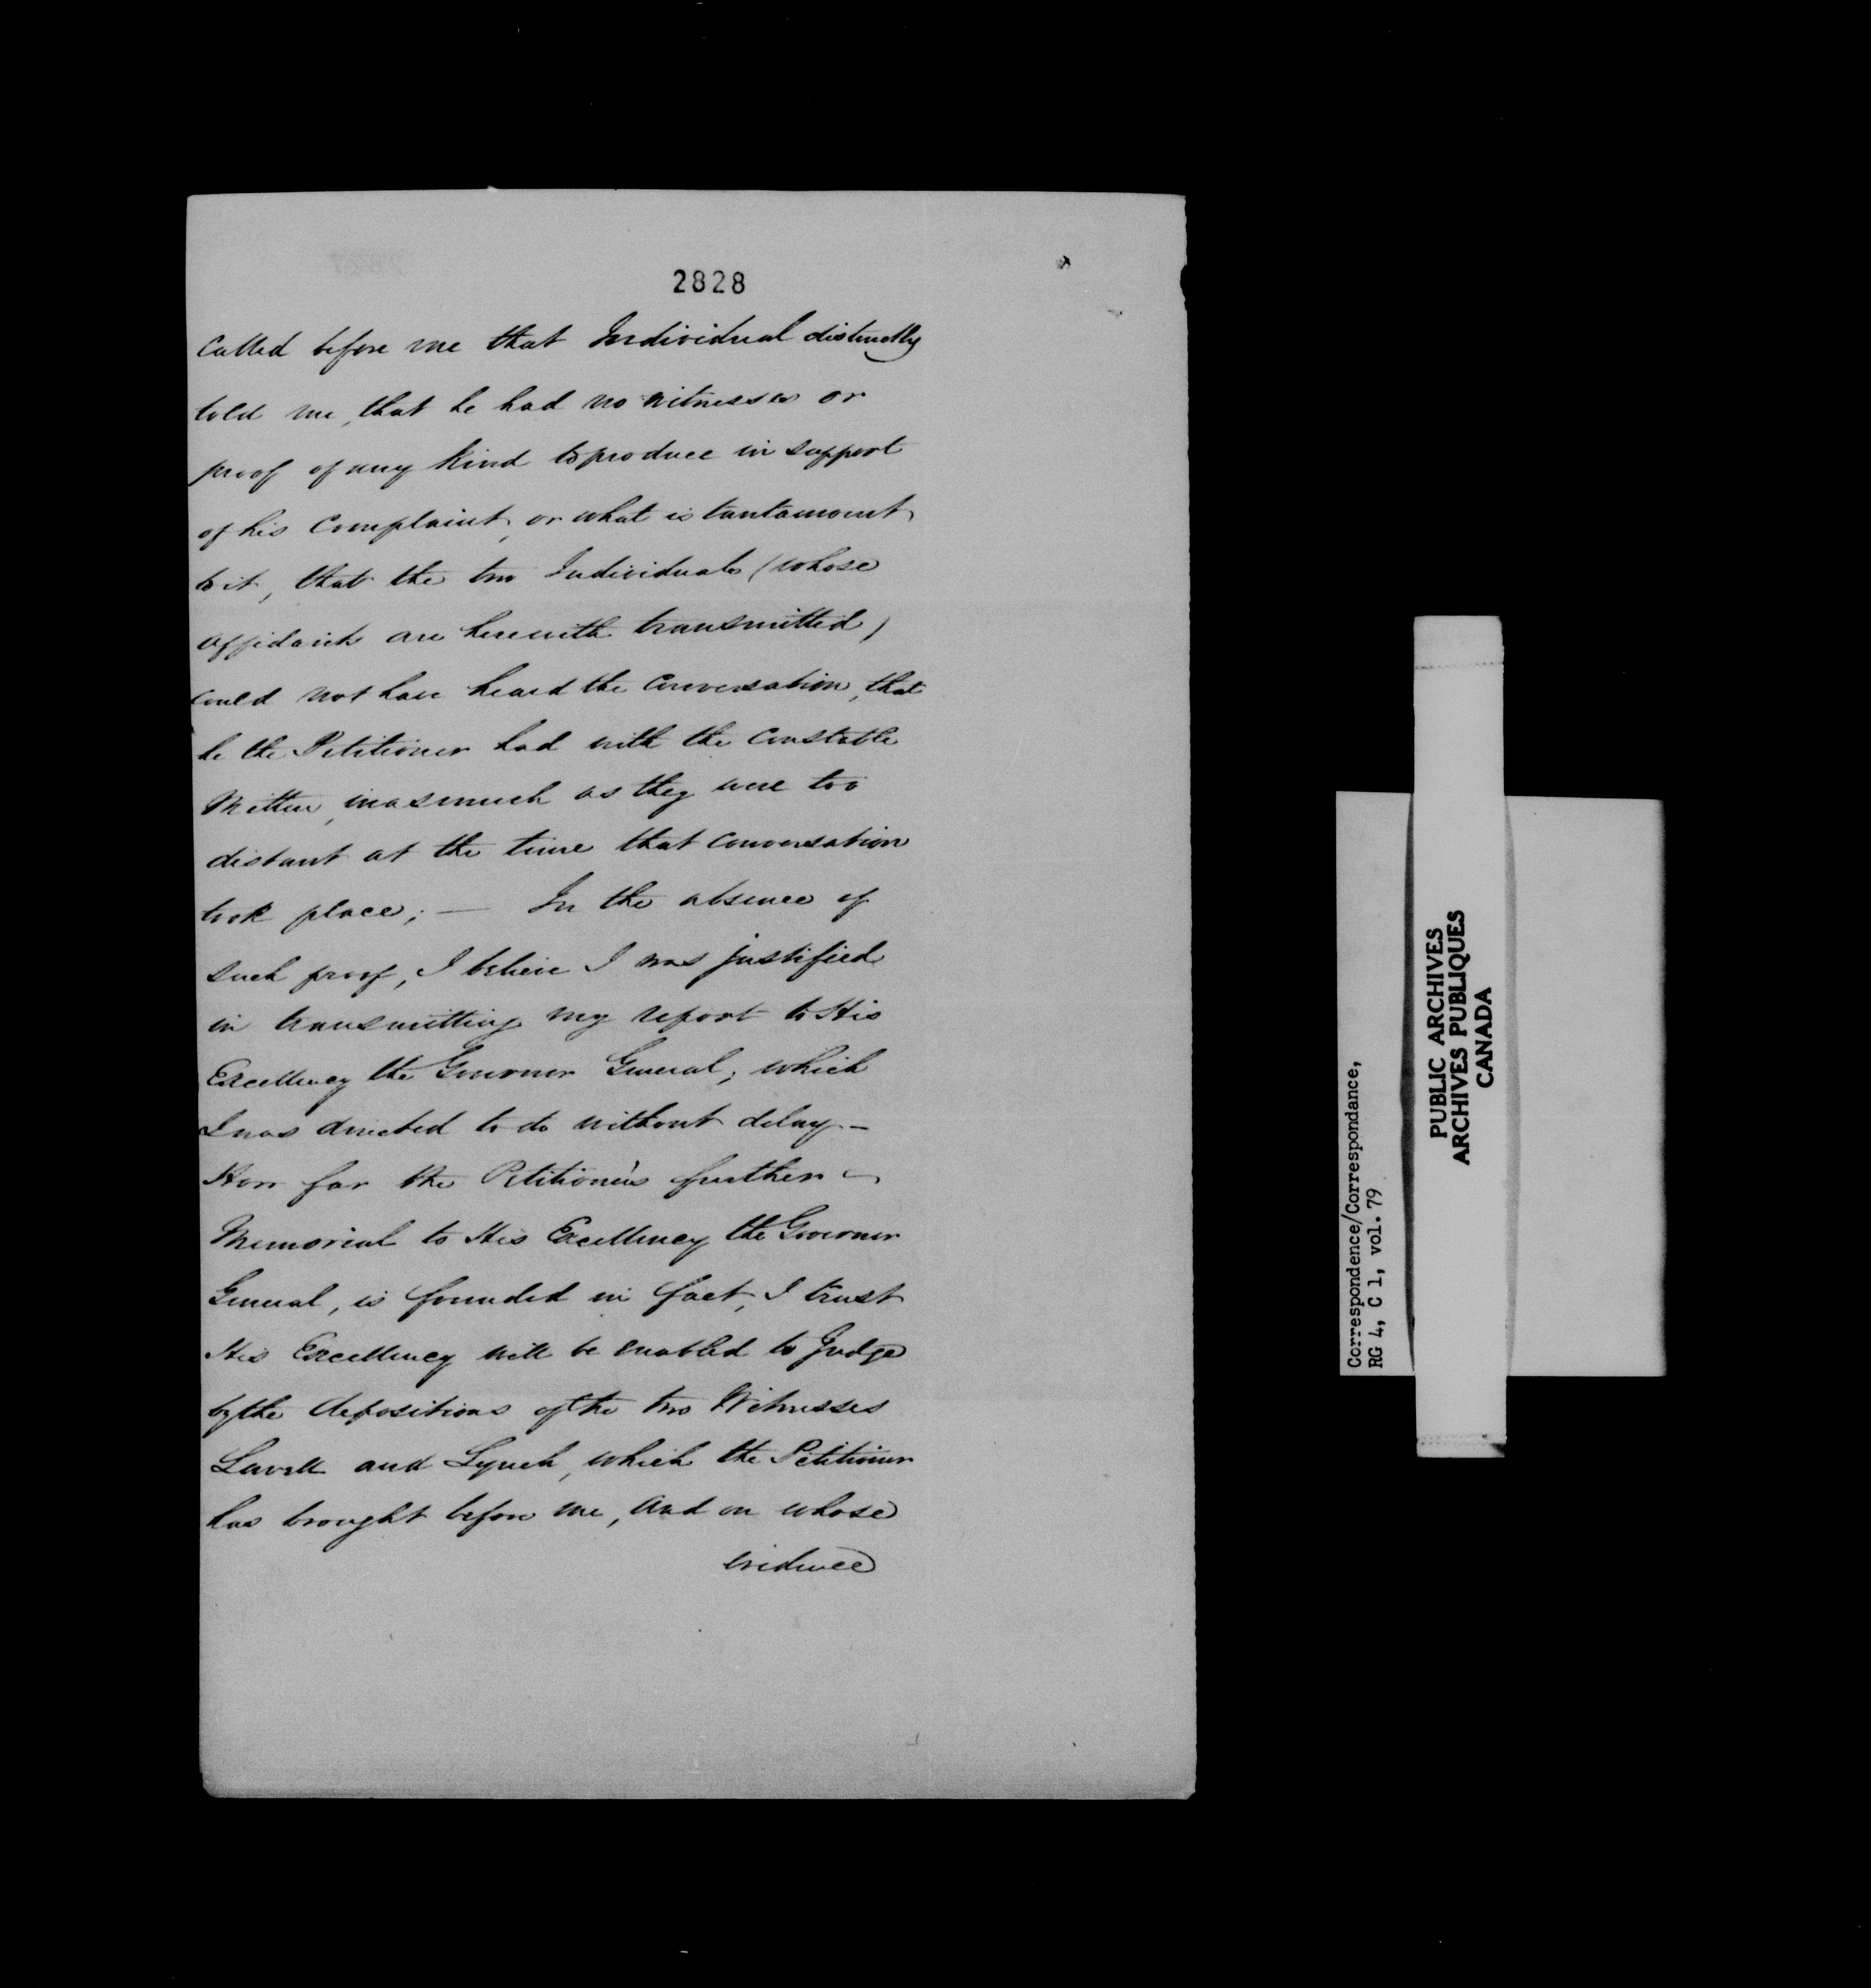 2828
Called before me that Individual distinctly
told me, that he had no witnesses or
proof of any kind to produce in support
of his Complaint, or what is tantamount
to it, that the two Individuals (whose
affidavits are herewith transmitted)
could not have heard the Conversation, that
he the Petitioner had with the Constable
inasmuch as they were too
distant at the time that conversation
took place; — In the absence of
such proof, I believe I was justified
in transmitting my report to His
Excellency the Governor General; which
I was directed to do without delay. —
How far the Petitioner's further
Memorial to His Excellency the Governor
General, is founded in fact, I trust
His Excellency will be enabled to Judge
by the depositions of the two Witnesses
and Lynch, which the Petitioner
has brought before me, and on whose
evidence
Correspondence/Correspondance,
RG 4, C 1, vol. 79
PUBLIC ARCHIVES
ARCHIVES PUBLIQUES
CANADA